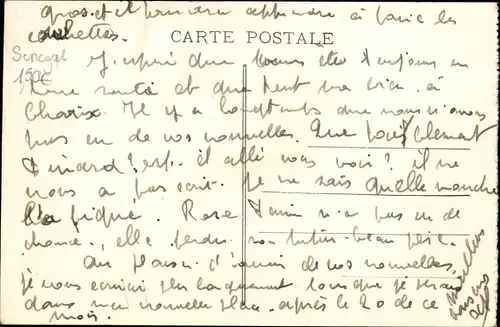 gros et il pourra apprendre à faire les
couchettes.
CARTE POSTALE
Senegal
150€
J'espère que vous êtes toujours en
bonne santé et que tout va bien à
Charix. Il y a longtemps que nous n'avons
pas eu de vos nouvelles. Que fait Clément
Dinard? est-il allé vous voir? il ne
nous a pas écrit. Je ne sais quelle mouche
l'a piqué. Rose n'a pas eu de
chance, elle perdu son beau père.
Au plaisir d'avoir de vos nouvelles.
Je vous écrirai plus longuement lorsque je serai
dans ma nouvelle place après le 20 de ce
mois.